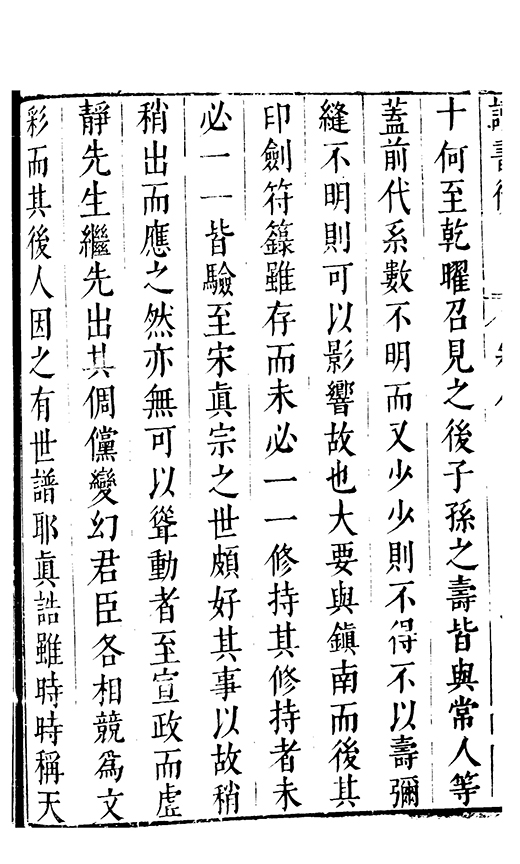 讀書後
十何至乾曜召見之後子孫之壽皆與常人等
蓋前代系數不明而又少少則不得不以壽彌
縫不明則可以影響故也大要與鎮南而後其
印劍符籙雖存而未必一一修持其修持者未
必一一皆驗至宋眞宗之世頗好其事以故稍
稍出而應之然亦無可以聳動者至宣政而虛
靜先生繼先出其倜儻變幻君臣各相競爲文
彩而其後人因之有世譜耶眞誥雖時時稱天